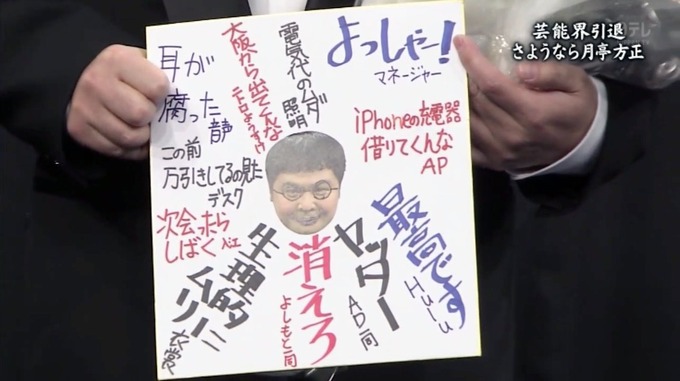 芸能界引退
さようなら月亭方正
日テレ
よっしゃー!
マネージャー
電気代のムダ
照明
大阪から出てくんな
耳が
腐った
音声
iPhoneの充電器
借りてくんな
AP
この前
万引きしてるの見た
デスク
次会ったら
しばく
最高です
Hulu
ヤッター
AD一同
消えろ
よしもと一同
生理的に
ムリー
衣裳